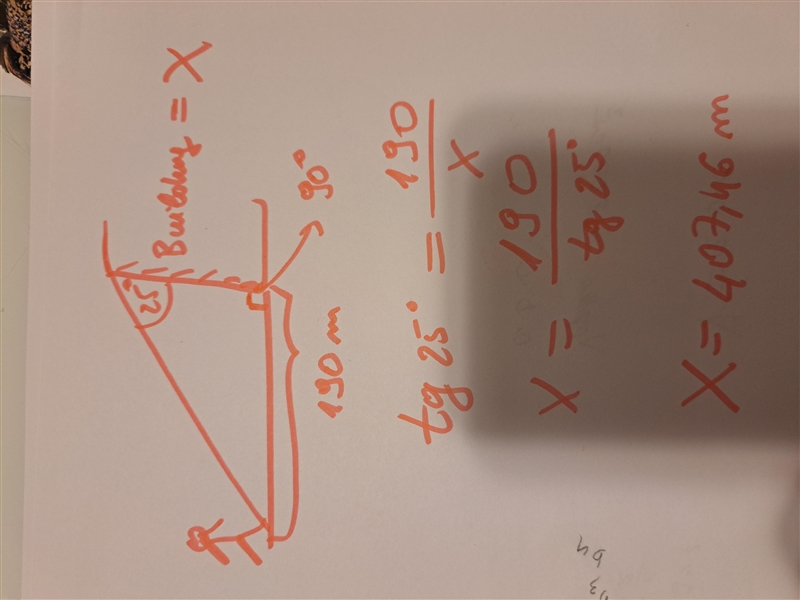 Building = X
25°
90°
190 m
tg 25° = 190 / X
X = 190 / tg 25°
X = 407,46 m